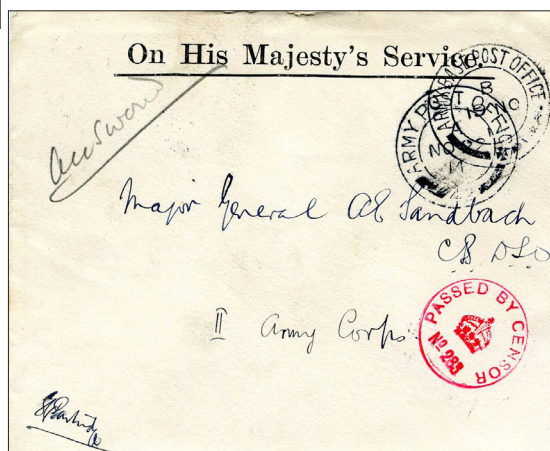 On His Majesty's Service.
ARMY BASE POST OFFICE
B
NO
ARMY PO
NO
answered
Major General AE Sandbach
CB DSO
II Army Corps
PASSED BY CENSOR
No 283